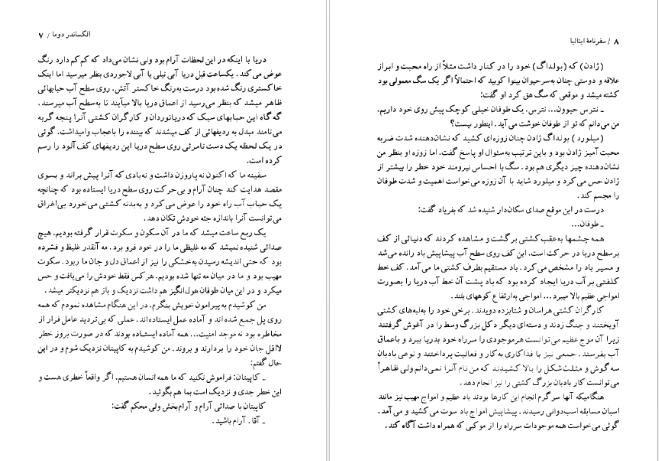 الکساندر دوما / ۷
دریا با اینکه در این لحظات آرام بود ولی نشان می‌داد که کم کم دارد رنگ
عوض می کند. یکساعت قبل دریا آبی نیلی یا آبی لاجوردی بنظر میرسید اما اینک
خاکستری رنگ شده بود درست به‌رنگ خاکستر آتش. روی سطح آب حبابهائی
ظاهر میشد که بنظر می‌رسید از اعماق دریا بالا میآیند تا به‌سطح آب میرسند.
گه گاه این حبابهای سبک که دریانوردان و کارگران کشتی آنرا پنجه گربه
می‌نامند مبدل به ردیفهائی از کف میشدند که بیننده را باعجاب وامیداشت. گوئی
در یک لحظه یک دست نامرئی روی سطح دریا این ردیفهای کف آلود را رسم
کرده است.
سفینه ما که اکنون نه پاروزن داشت و نه‌بادی که آنرا پیش براند و بسوی
مقصد هدایت کند چنان آرام و بی‌حرکت روی سطح دریا ایستاده بود که چنانچه
یک حباب آب راه خود را عوض می‌کرد و به‌بدنه کشتی می‌خورد بی‌اغراق
می‌توانست آنرا باندازه جثه خودش تکان دهد.
یک ربع ساعت میشد که ما در آن سکون و سکوت قرار گرفته بودیم. هیچ
صدائی شنیده نمیشد که مه غلیظی ما را در خود فرو برد. مه آنقدر غلیظ و فشرده
بود که حتی اندیشه رسیدن به‌خشکی را نیز از اعماق دل و جان ما ربود. سکوت
مهیب بود و ما در میان مه تنها شده بودیم. هر کس فقط خودش را می‌یافت و حس
میکرد و در این میان طوفان هول‌انگیز هم داشت نزدیک و باز هم نزدیکتر میشد.
من کوشیدم به‌پیرامون خویش بنگرم. در این هنگام مشاهده نمودم که همه
روی پل جمع شده‌اند و آماده عمل ایستاده‌اند. عملی که بی‌تردید عامل فرار از
مخاطره بود نه موجد امنیت... همه آماده ایستاده بودند که در صورت بروز خطر
لااقل جان خود را بردارند و بروند. من کوشیدم به کاپیتان نزدیک شوم و در این
حال گفتم:
ـ کاپیتان: فراموش نکنید که ما همه انسان هستیم. اگر واقعاً خطری هست و
این خطر جدی و نزدیک است بما هم بگوئید.
کاپیتان با صدائی آرام و آرام‌بخش ولی محکم گفت:
ـ آقا. آرام باشید.
۸ / سفرنامهٔ ایتالیا
(ژادن) که (بولداگ) خود را در کنار داشت مثلاً از راه محبت و ابراز
علاقه و دوستی چنان به‌سرحیوان بینوا کوبید که احتمالاً اگر یک سگ معمولی بود
کشته میشد و موقعی که سگ هق کرد او گفت:
ـ نترس حیوون... نترس. یک طوفان خیلی کوچک پیش روی خود داریم.
من می‌دانم که تو از طوفان خوشت می آید. اینطور نیست؟
(میلورد) بولداگ ژادن چنان زوزه‌ای کشید که نشان‌دهنده شدت ضربه
محبت آمیز ژادن بود و باین ترتیب به‌سئوال او پاسخ گفت. اما زوزه او بنظر من
نشان‌دهنده چیز دیگری هم بود. سگ با احساس نیرومند خود خطر را بیشتر از
ژادن حس می‌کرد و میلورد شاید با آن زوزه می‌خواست اهمیت و شدت طوفان
را مجسم کند.
درست در این موقع صدای سکان‌دار شنیده شد که بفریاد گفت:
ـ طوفان...
همه چشمها به‌عقب کشتی برگشت و مشاهده کردند که دنیائی از کف
برسطح دریا در حرکت است. این کف روی سطح آب پیشاپیش باد رانده می‌شد
و مسیر باد را مشخص می‌کرد. باد مستقیم بطرف کشتی ما می آمد. کف خط
کلفتی بر آب دریا ایجاد کرده بود که باد پشت آن خط آب دریا را بصورت
امواجی عظیم بالا میبرد... امواجی به‌ارتفاع کوههای بلند.
کارگران کشتی هراسان و شتابزده دویدند. برخی خود را به‌لبه‌های کشتی
آویختند و چنگ زدند و دسته‌ای دیگر دکل بزرگ وسط را در آغوش گرفتند
زیرا آن موج عظیم می‌توانست هرموجودی را سرراه خود بدریا ببرد و باعماق
آب بفرستد. جمعی نیز با فداکاری به کار و فعالیت پرداختند و نوعی بادبان
سه گوش و مثلث‌شکل را بالا کشیدند که من نام آنرا نمی‌دانم ولی ظاهراً
می‌توانست کار بادبان بزرگ کشتی را نیز انجام دهد.
هنگامیکه آنها سرگرم انجام این کارها بودند باد عظیم و امواج مهیب نیز مانند
اسبان مسابقه اسب‌دوانی رسیدند. پیشاپیش امواج باد سوت می‌کشید و می‌آمد.
گوئی می‌خواست همه موجودات سرراه را از موکبی که همراه داشت آگاه کند.